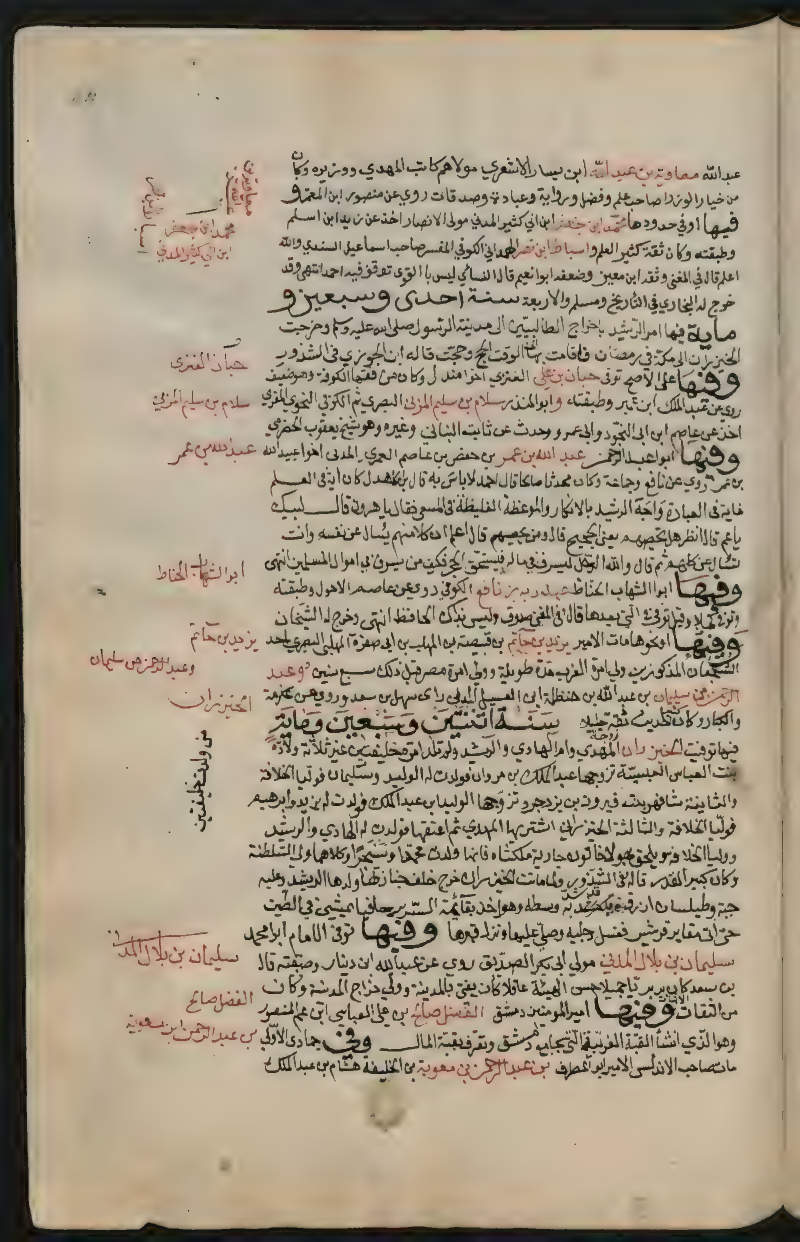 عبدالله معاوية بن عبدالله ابن يسار الاشعري مولاهم كاتب المهدي ووزيره وكان
من خيار الوزرا صاحب علم وفضل ورواية وعبادة وصدقات روى عن منصور ابن المعتمر و
فيها او في حدودها محمد ابن جعفر ابن ابي كثير المدني مولى الانصار اخذ عن زيد ابن اسلم
وطبقته وكان ثقة كثير العلم و اسباط ابن نصر الهمداني الكوفي المفسر صاحب اسماعيل السدي والله
اعلم قال في المغني وثقه ابن معين وضعفه ابو نعيم قال النسائي ليس بالقوي توقف فيه احمد انتهى وقد
خرج له البخاري في التاريخ ومسلم والاربعة سنة احدى وسبعين و
ماية فيها امر الرشيد باخراج الطالبيين الى مدينة الرسول صلى الله عليه وسلم وخرجت
الخيزران الى مكة في رمضان فاقامت بها الى وقت الحج وحجت قاله ابن الجوزي في الشذور
وفيها على الاصح توفي حبان بن علي العنزي اخو مندل وكان من فقها الكوفة وهو ضعيف
روى عن عبد الملك ابن عمير وطبقته وابو المنذر سلام بن سليم المزني البصري ثم الكوفي النحوي المقري
اخذ عن عاصم ابن ابي النجود وابي عمرو وحدث عن ثابت البناني وغيره وهو شيخ يعقوب الحضرمي
وفيها ابو عبد الرحمن عبد الله بن عمر بن حفص بن عاصم العمري المدني اخو عبيد الله
بن عمر روى عن نافع وجماعة وكان محدثا صالحا قال احمد لا باس به قال كان اية في العلم
غاية في العبادة واجه الرشيد بالانكار والموعظة الغليظة في المسعى فقال يا هرون قال لبيك
يا عم قال انظر هل تحصيهم يعني الحجيج قال ومن يحصيهم قال اعلم ان كلا منهم يسال عن نفسه وانت
تسال عن كلهم ثم قال والله ان الرجل ليسرف في ماله فيستحق الحجر فكيف من يسرف في اموال المسلمين انتهى
وفيها ابو الشهاب الحناط عبد ربه بن نافع الكوفي روى عن عاصم الاحول وطبقته
وقيل توفي في التي بعدها قال في المغني صدوق وليس بذلك الحافظ انتهى وخرج له الشيخان
وفيها او نحوها مات الامير يزيد بن حاتم بن قبيصة بن المهلب بن ابي صفرة المهلبي البصري احد
الشجعان المذكورين ولي امرة المغرب مدة طويلة وولي امرة مصر قبل ذلك سبع سنين وعبد
الرحمن بن سليمان بن عبد الله بن حنظلة ابن الغسيل المدني راى سهل بن سعد وروى عن عكرمة
والكبار وكان كثير الحديث ثقة جليلا سنة اثنتين وسبعين وماية
فيها توفيت الخيزران زوجة المهدي وام الهادي والرشيد ولم تلد امراة خليفتين غير ثلاثة ولادة
بنت العباس العبسية تزوجها عبد الملك بن مروان فولدت له الوليد وسليمان فوليا الخلافة
والثانية شاهفريد بنت فيروز بن يزدجرد تزوجها الوليد ابن عبد الملك فولدت له يزيد وابراهيم
فوليا الخلافة والثالثة الخيزران اشتراها المهدي ثم اعتقها فولدت له الهادي والرشيد
ووليا الخلافة ويلحق بهولا خاتون جارية ملكشاه فانها ولدت محمدا وسنجرا وكلاهما ولي السلطنة
وكان كبير القدر قاله في الشذور ولما ماتت الخيزران خرج خلف جنازتها ولدها الرشيد وعليه
جبة وطيلسان ازرق قد شد به وسطه وهو اخذ بقايمة السرير حافيا يمشي في الطين
حتى اتى مقابر قريش فغسل رجليه وصلى عليها ونزل قبرها وفيها توفي الامام ابو محمد
سليمان بن بلال المدني مولى ال ابي بكر الصديق روى عن عبد الله ابن دينار وطبقته قال
بن سعد كان بربريا جميلا حسن الهيئة عاقلا كان يفتي بالمدينة وولي خراج المدينة وكان
من الثقات الاثبات وفيها امير المومنين دمشق الفضل صالح بن علي العباسي ابن عم المنصور
وهو الذي انشا القبة الغربية التي بجامع دمشق وتعرف بقبة المال وفي جمادى الاولى
مات صاحب الاندلس الامير ابو المطرف بن عبد الرحمن بن معوية بن الخليفة هشام بن عبد الملك
معاوية بن عبدالله
محمد ابن جعفر
ابن ابي كثير المدني
اسباط ابن نصر
حبان العنزي
سلام بن سليم المزني
عبدالله بن عمر
ابو الشهاب الحناط
يزيد بن حاتم
وعبد الرحمن بن سليمان
الخيزران
من ولدت خليفتين
سليمان بن بلال المدني
الفضل صالح
بن عبد الرحمن ابن معوية